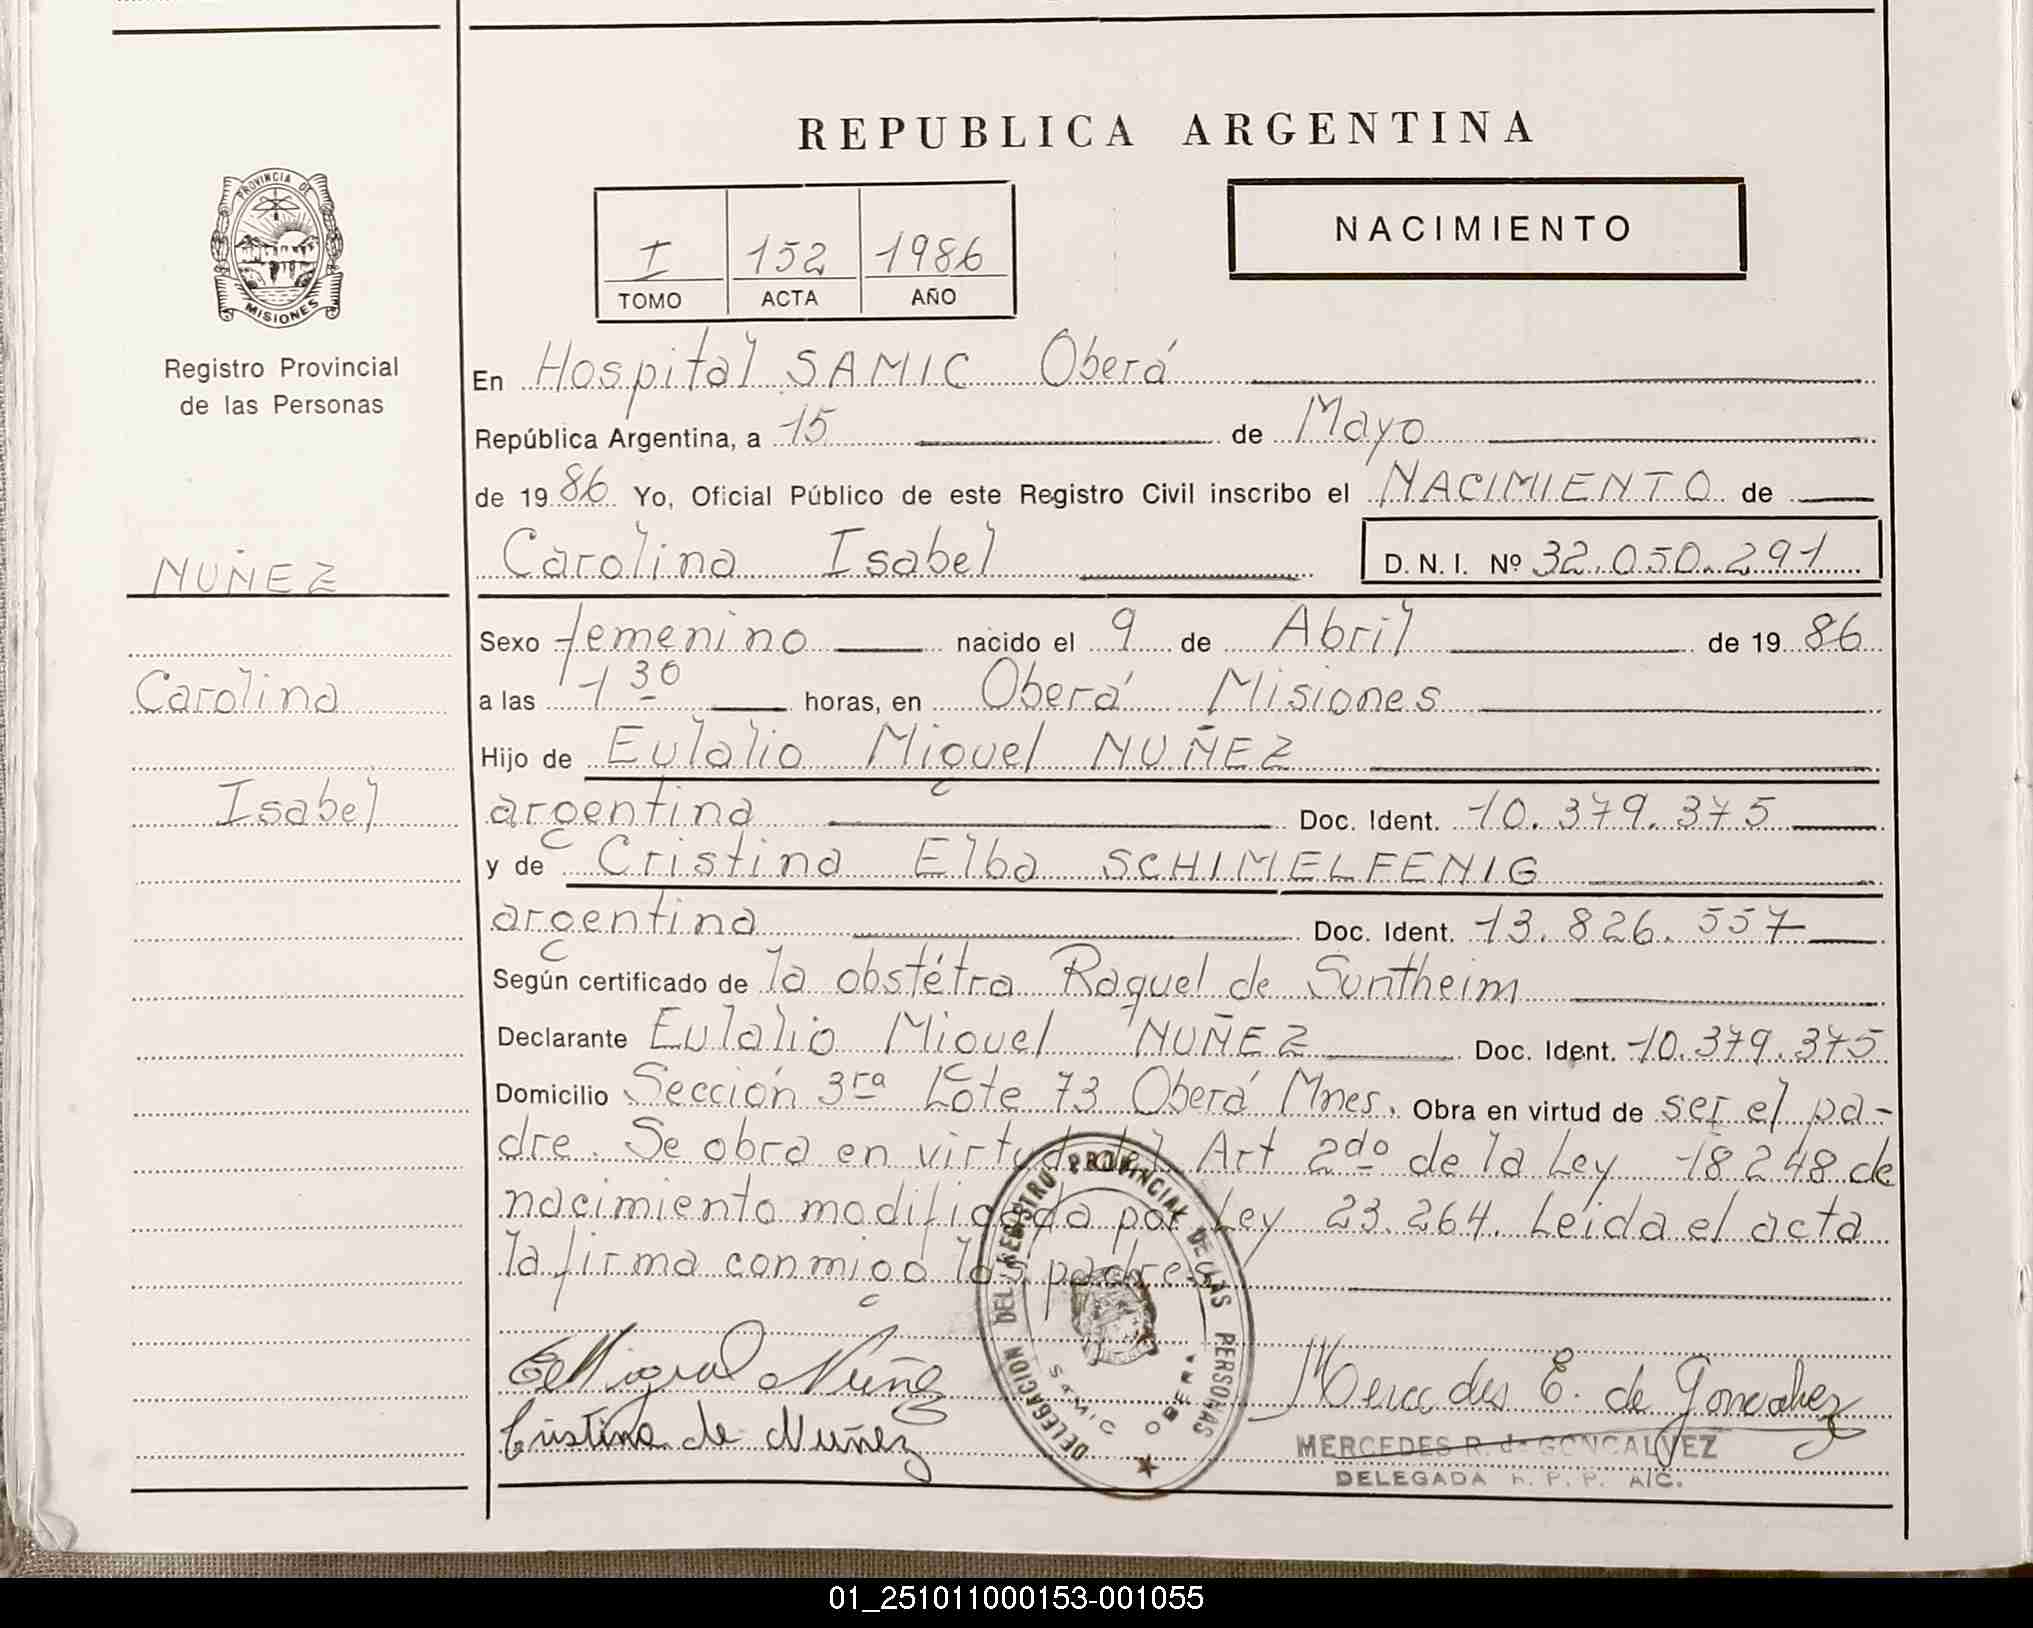 REPUBLICA ARGENTINA
PROVINCIA DE
MISIONES
Registro Provincial
de las Personas
I 152 1986
TOMO ACTA AÑO
NACIMIENTO
En Hospital SAMIC Oberá
República Argentina, a 15 de Mayo
de 1986 Yo, Oficial Público de este Registro Civil inscribo el NACIMIENTO de
Carolina Isabel D. N. I. Nº 32.050.291
NUÑEZ
Carolina
Isabel
Sexo femenino nacido el 9 de Abril de 1986
a las 1 30 horas, en Oberá Misiones
Hijo de Eulalio Miguel NUÑEZ
argentina Doc. Ident. 10.379.375
y de Cristina Elba SCHIMELFENIG
argentina Doc. Ident. 13.826.557
Según certificado de la obstétra Raquel de Suntheim
Declarante Eulalio Miguel NUÑEZ Doc. Ident. 10.379.375
Domicilio Sección 3ra Lote 73 Oberá Mnes. Obra en virtud de ser el pa-
dre. Se obra en virtud del Art 2do de la Ley 18248 de
nacimiento modificada por Ley 23.264. Leida el acta
la firma conmigo los padres
DELEGACION DEL REGISTRO PROVINCIAL DE LAS PERSONAS
SAMIC OBERA
Miguel Nuñez
Cristina de Nuñez
Mercedes E. de Goncalvez
MERCEDES R. de GONCALVEZ
DELEGADA R. P. P. A/C.
01_251011000153-001055